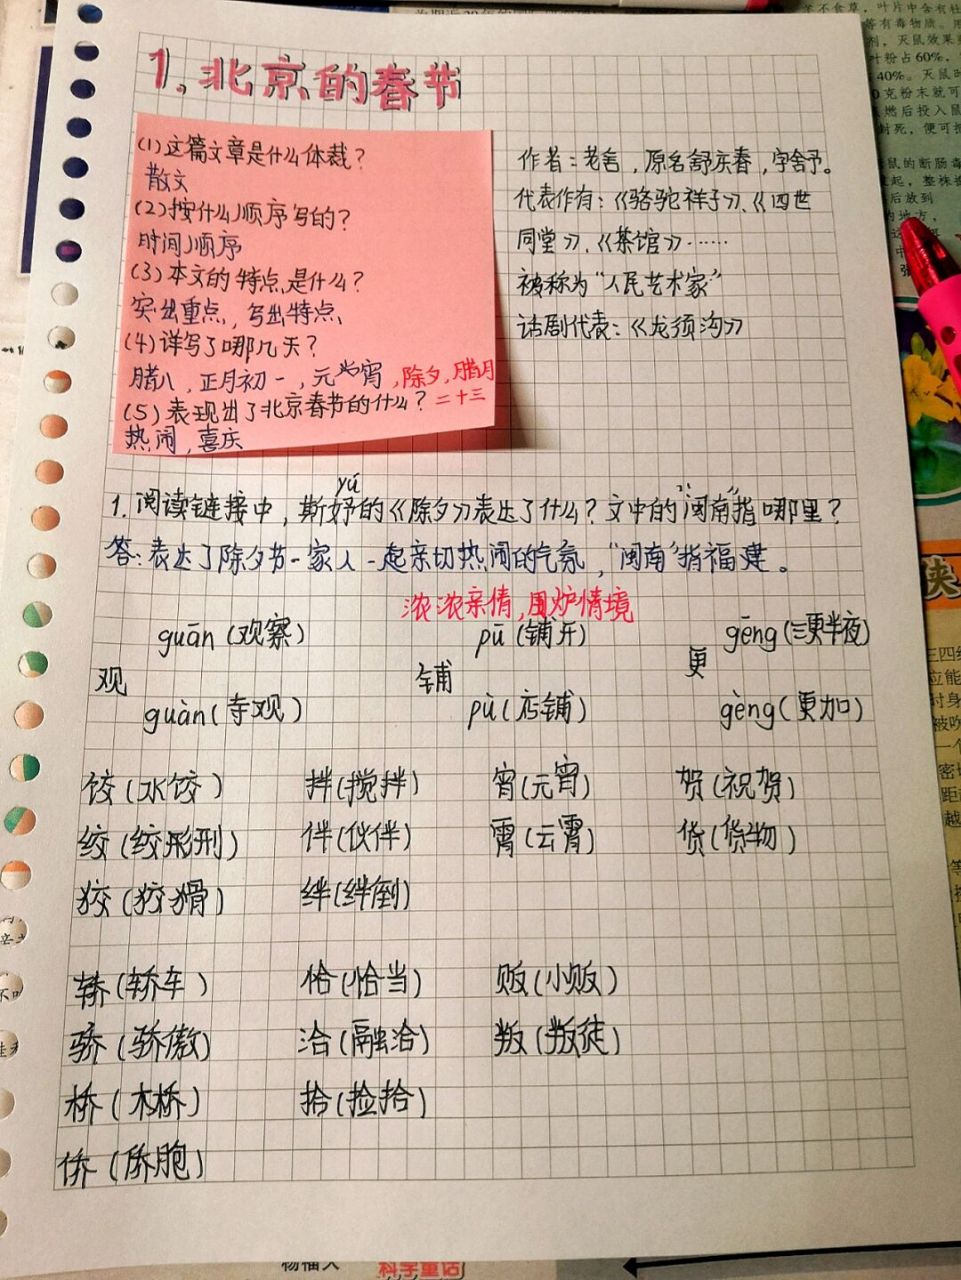 1. 北京的春节
(1)这篇文章是什么体裁？
散文
(2)按什么顺序写的？
时间顺序
(3)本文的特点是什么？
突出重点，写出特点
(4)详写了哪几天？
腊八，正月初一，元宵，除夕，腊月
二十三
(5)表现出了北京春节的什么？
热闹，喜庆
作者：老舍，原名舒庆春，字舍予。
代表作有：《骆驼祥子》、《四世
同堂》、《茶馆》……
被称为“人民艺术家”
话剧代表：《龙须沟》
yú
1. 阅读链接中，斯妤的《除夕》表达了什么？文中的“闽南”指哪里？
答：表达了除夕节一家人一起亲切热闹的气氛，“闽南”指福建。
浓浓亲情，围炉情境
guān (观察) pū (铺开) gēng (三更半夜)
观 铺 更
guàn (寺观) pù (店铺) gèng (更加)
饺(水饺) 拌(搅拌) 宵(元宵) 贺(祝贺)
绞(绞形刑) 伴(伙伴) 霄(云霄) 货(货物)
狡(狡猾) 绊(绊倒)
轿(轿车) 恰(恰当) 贩(小贩)
骄(骄傲) 洽(融洽) 叛(叛徒)
桥(木桥) 拾(捡拾)
侨(侨胞)
科学童话